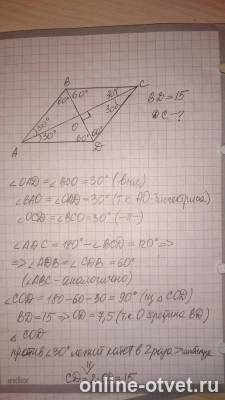 B
60° 60°
C
30°
30°
BD=15
DC-?
O
30°
30°
60° 60°
A
D
∠OAD=∠BCO=30° (внл)
∠BAO=∠OAD=30° (т.к AO-биссектриса)
∠OCD=∠BCO=30° (-||-)
∠ADC=180°-∠BCD=120°=>
=>∠ADB=∠CDB=60°
(∠ABC-аналогично)
∠COD=180-60-30=90° (из △COD)
BD=15=>OD=7,5 (т.к O середина BD)
△COD
против ∠30° лежит катет в 2 раза > 
CD=2·OD=15
online-otvet.ru